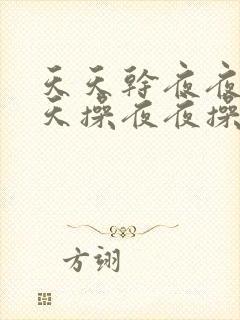 天天幹夜夜
天操夜夜操
方翊